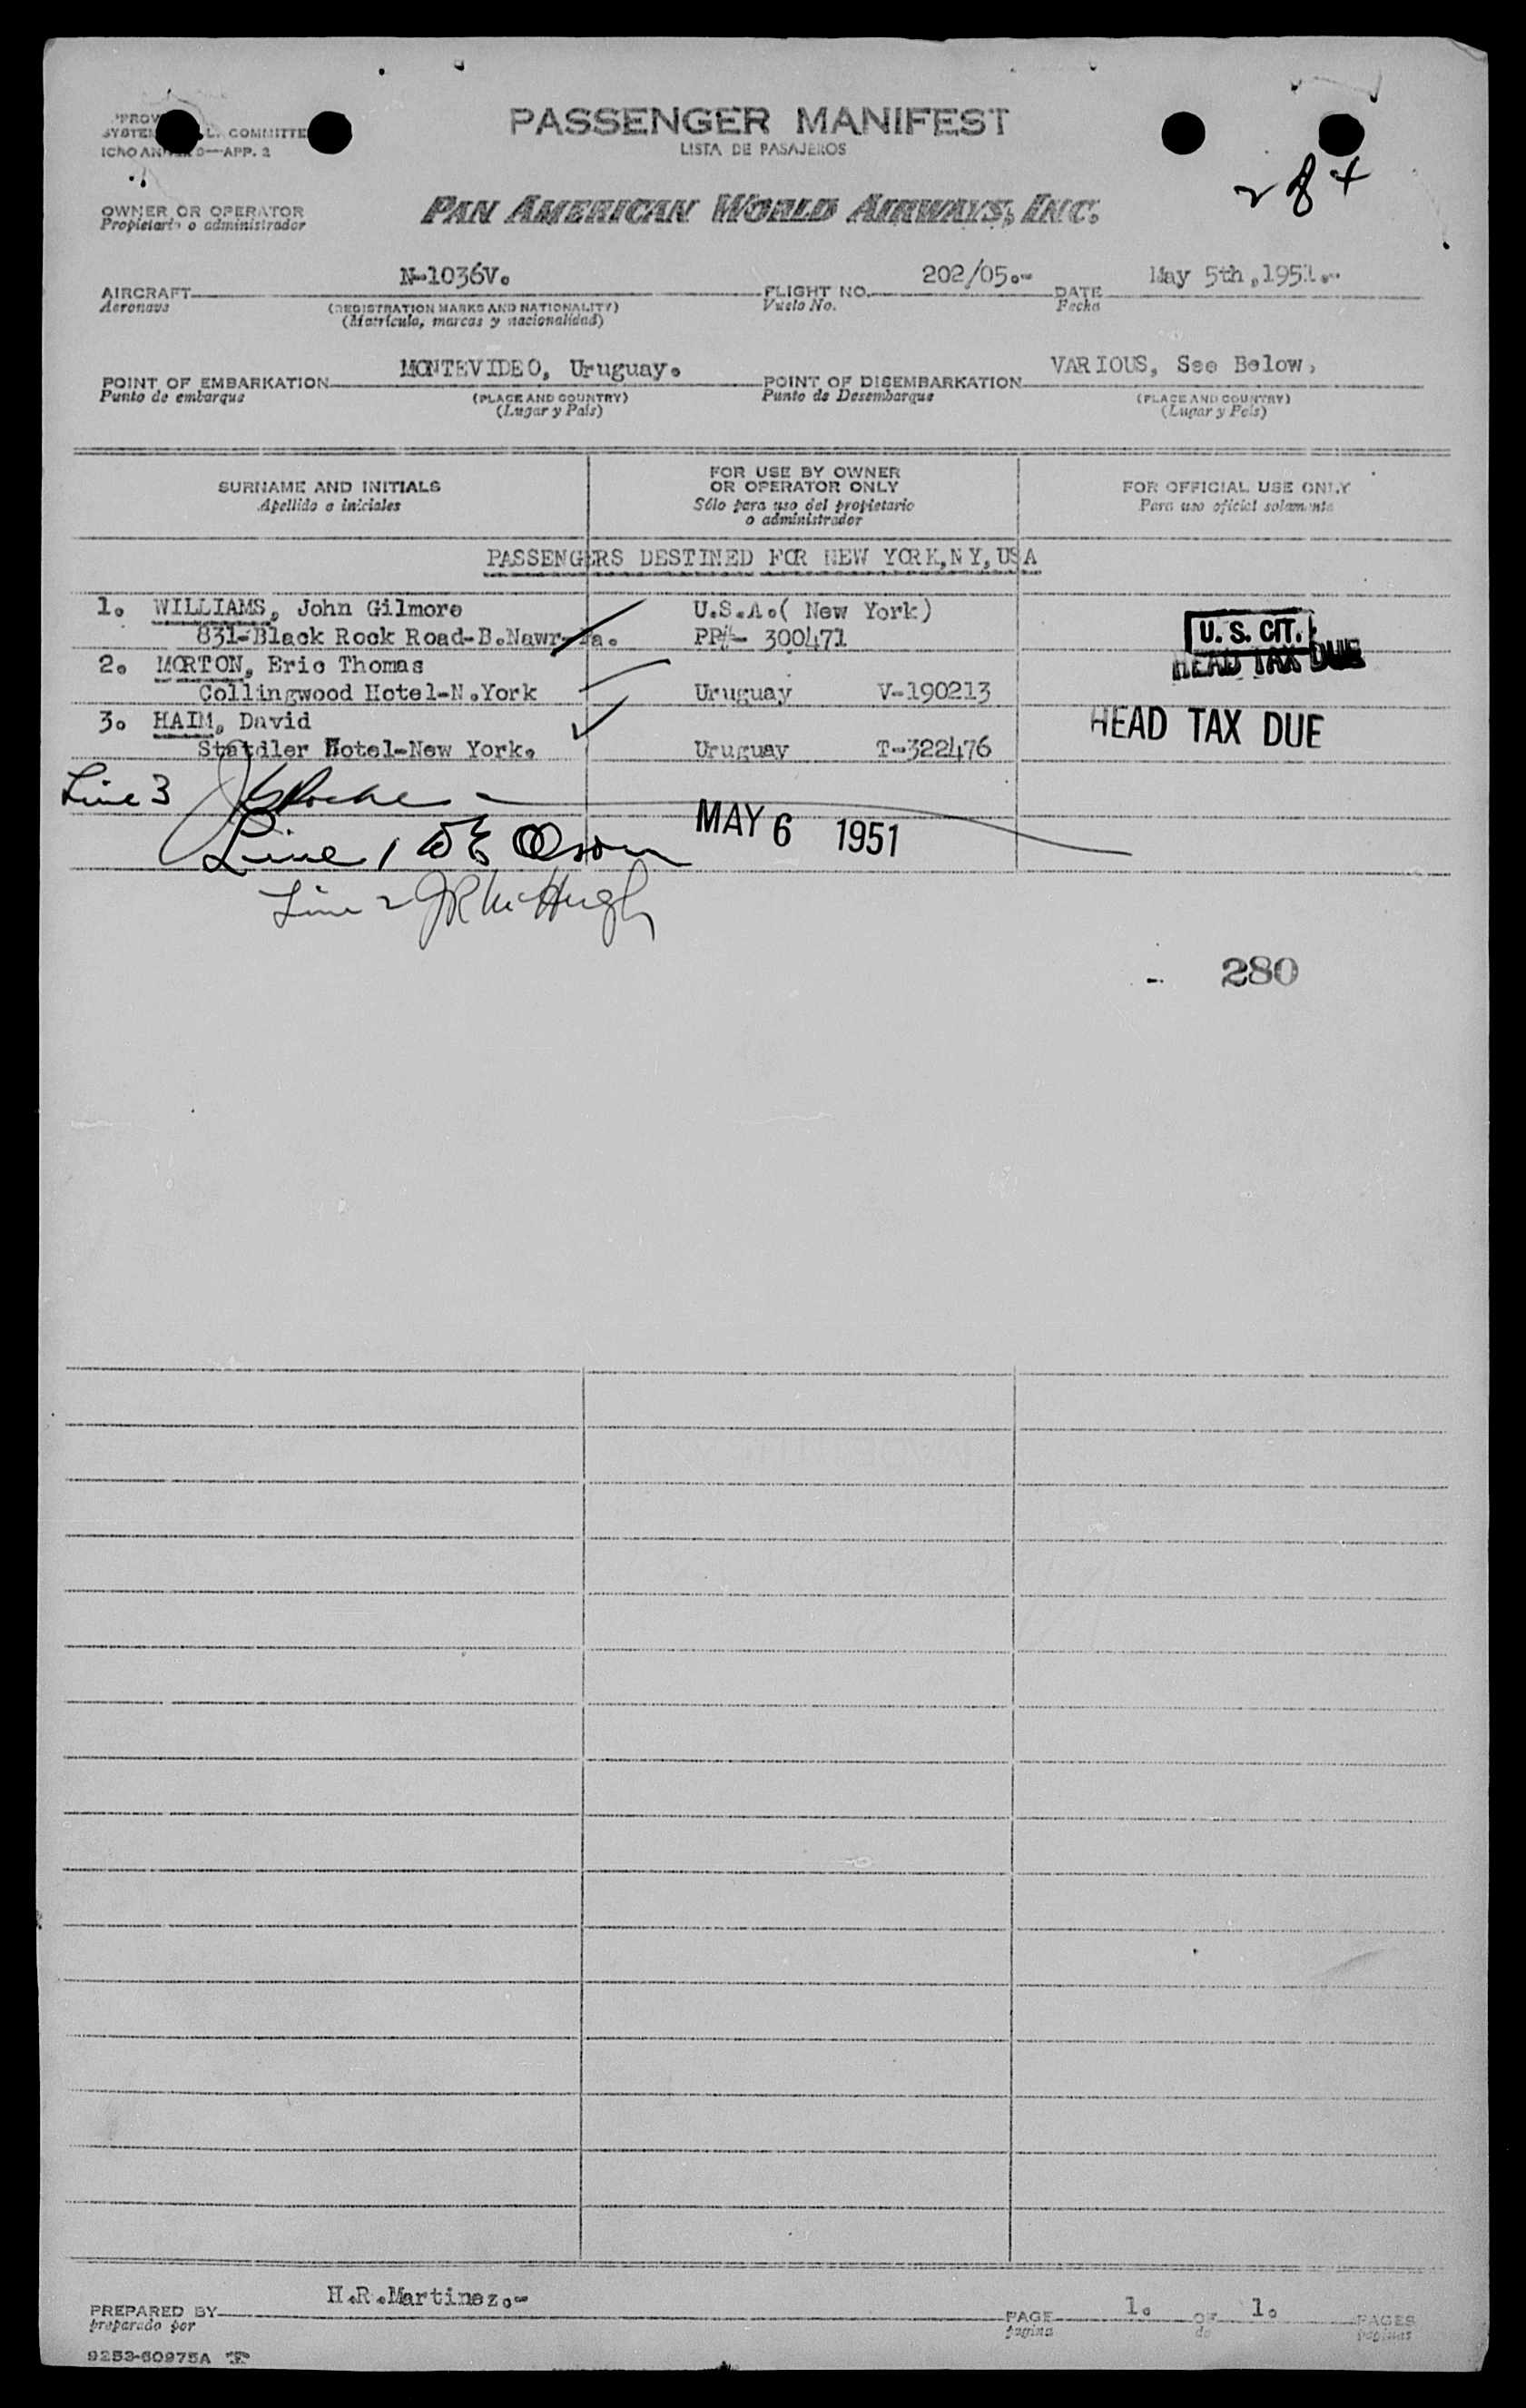 PASSENGER MANIFEST
LISTA DE PASAJEROS
COMMITTE
APP. 2
284
OWNER OR OPERATOR
Propietario o administrador
PAN AMERICAN WORLD AIRWAYS, INC.
AIRCRAFT N-1036V. FLIGHT NO. 202/05.- DATE May 5th,1951.-
Aeronave (REGISTRATION MARKS AND NATIONALITY) Vuelo No. Fecha
(Matrícula, marcas y nacionalidad)
POINT OF EMBARKATION MONTEVIDEO, Uruguay. POINT OF DISEMBARKATION VARIOUS, See Below.
Punto de embarque (PLACE AND COUNTRY) Punto de Desembarque (PLACE AND COUNTRY)
(Lugar y País) (Lugar y País)
SURNAME AND INITIALS FOR USE BY OWNER OR OPERATOR ONLY FOR OFFICIAL USE ONLY
Apellido e iniciales Sólo para uso del propietario o administrador Para uso oficial solamente
PASSENGERS DESTINED FOR NEW YORK,NY,USA
1. WILLIAMS, John Gilmore U.S.A.( New York)
831-Black Rock Road-B.Nawr-Pa. PP#- 300471 U. S. CIT.
HEAD TAX DUE
2. MORTON, Eric Thomas
Collingwood Hotel-N.York Uruguay V-190213
3. HAIM, David HEAD TAX DUE
Statdler Hotel-New York. Uruguay T-322476
Line 3
MAY 6 1951
Line 1 WE Olson
Line 2 JR McHugh
280
PREPARED BY H.R.Martinez.- PAGE 1. OF 1. PAGES
preparado por pagina de paginas
9253-60975A